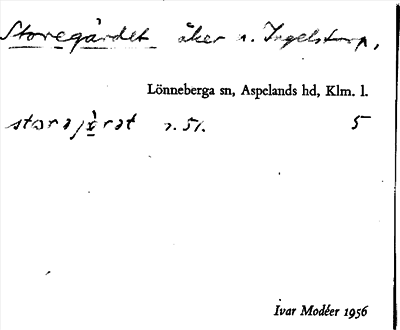 Storegärdet åker n. Ingelstorp,
Lönneberga sn, Aspelands hd, Klm. l.
5
Ivar Modéer 1956